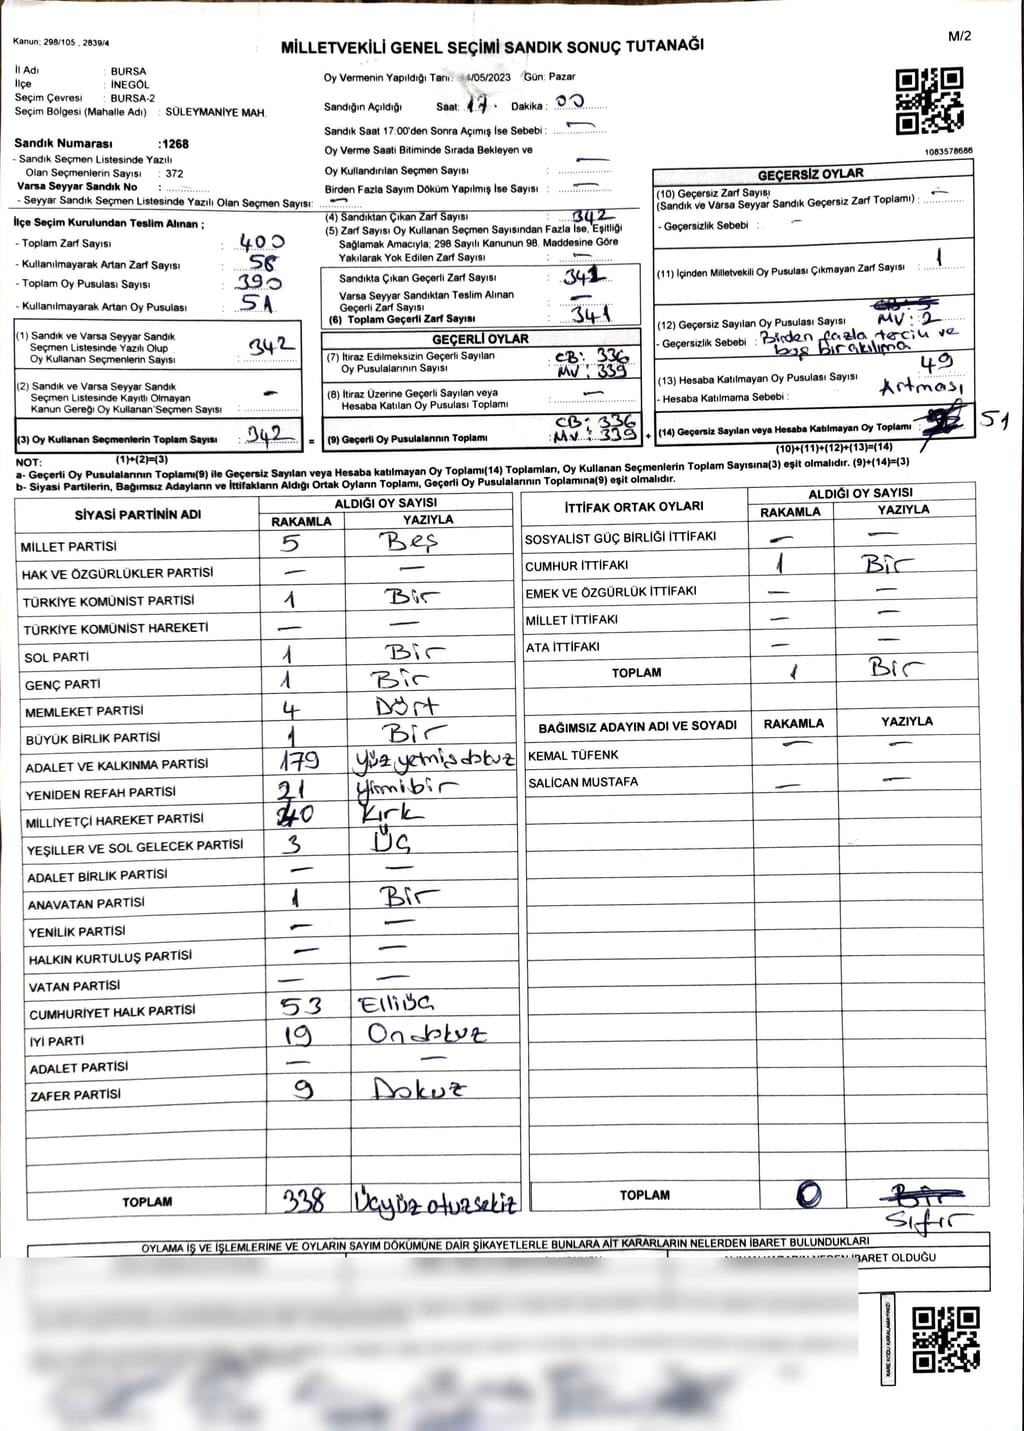 Kanun; 298/105 , 2839/4
MİLLETVEKİLİ GENEL SEÇİMİ SANDIK SONUÇ TUTANAĞI
M/2
İl Adı : BURSA
İlçe : İNEGÖL
Seçim Çevresi : BURSA-2
Seçim Bölgesi (Mahalle Adı) : SÜLEYMANİYE MAH.
Sandık Numarası :1268
- Sandık Seçmen Listesinde Yazılı
Olan Seçmenlerin Sayısı : 372
Varsa Seyyar Sandık No : ..............
- Seyyar Sandık Seçmen Listesinde Yazılı Olan Seçmen Sayısı: —
Oy Vermenin Yapıldığı Tarih: 4/05/2023 Gün: Pazar
Sandığın Açıldığı Saat: 17 . Dakika : 00
Sandık Saat 17:00'den Sonra Açımış İse Sebebi : —
Oy Verme Saati Bitiminde Sırada Bekleyen ve
Oy Kullandırılan Seçmen Sayısı : —
Birden Fazla Sayım Döküm Yapılmış İse Sayısı : —
1083578686
İlçe Seçim Kurulundan Teslim Alınan ;
- Toplam Zarf Sayısı : 400
- Kullanılmayarak Artan Zarf Sayısı : 58
- Toplam Oy Pusulası Sayısı : 390
- Kullanılmayarak Artan Oy Pusulası : 51
(1) Sandık ve Varsa Seyyar Sandık
Seçmen Listesinde Yazılı Olup
Oy Kullanan Seçmenlerin Sayısı : 342
(2) Sandık ve Varsa Seyyar Sandık
Seçmen Listesinde Kayıtlı Olmayan
Kanun Gereği Oy Kullanan Seçmen Sayısı : —
(3) Oy Kullanan Seçmenlerin Toplam Sayısı : 342
(1)+(2)=(3)
(4) Sandıktan Çıkan Zarf Sayısı : 342
(5) Zarf Sayısı Oy Kullanan Seçmen Sayısından Fazla İse, Eşitliği
Sağlamak Amacıyla; 298 Sayılı Kanunun 98. Maddesine Göre
Yakılarak Yok Edilen Zarf Sayısı : —
Sandıkta Çıkan Geçerli Zarf Sayısı : 341
Varsa Seyyar Sandıktan Teslim Alınan
Geçerli Zarf Sayısı : —
(6) Toplam Geçerli Zarf Sayısı : 341
GEÇERLİ OYLAR
(7) İtiraz Edilmeksizin Geçerli Sayılan
Oy Pusulalarının Sayısı : CB: 336
MV : 339
(8) İtiraz Üzerine Geçerli Sayılan veya
Hesaba Katılan Oy Pusulası Toplamı : —
= (9) Geçerli Oy Pusulalarının Toplamı : CB: 336
MV : 339 +
GEÇERSİZ OYLAR
(10) Geçersiz Zarf Sayısı
(Sandık ve Varsa Seyyar Sandık Geçersiz Zarf Toplamı) : —
- Geçersizlik Sebebi : —
(11) İçinden Milletvekili Oy Pusulası Çıkmayan Zarf Sayısı : 1
(12) Geçersiz Sayılan Oy Pusulası Sayısı : MV : 2
- Geçersizlik Sebebi : Birden fazla tercih ve
boş bırakılma
(13) Hesaba Katılmayan Oy Pusulası Sayısı : 49
- Hesaba Katılmama Sebebi : Artması
(14) Geçersiz Sayılan veya Hesaba Katılmayan Oy Toplamı : 51
(10)+(11)+(12)+(13)=(14)
NOT:
a- Geçerli Oy Pusulalarının Toplamı(9) ile Geçersiz Sayılan veya Hesaba katılmayan Oy Toplamı(14) Toplamları, Oy Kullanan Seçmenlerin Toplam Sayısına(3) eşit olmalıdır. (9)+(14)=(3)
b- Siyasi Partilerin, Bağımsız Adayların ve İttifakların Aldığı Ortak Oyların Toplamı, Geçerli Oy Pusulalarının Toplamına(9) eşit olmalıdır.
SİYASİ PARTİNİN ADI ALDIĞI OY SAYISI
RAKAMLA YAZIYLA
MİLLET PARTİSİ 5 Beş
HAK VE ÖZGÜRLÜKLER PARTİSİ — —
TÜRKİYE KOMÜNİST PARTİSİ 1 Bir
TÜRKİYE KOMÜNİST HAREKETİ — —
SOL PARTİ 1 Bir
GENÇ PARTİ 1 Bir
MEMLEKET PARTİSİ 4 Dört
BÜYÜK BİRLİK PARTİSİ 1 Bir
ADALET VE KALKINMA PARTİSİ 179 yüzyetmişdokuz
YENİDEN REFAH PARTİSİ 21 yirmibir
MİLLİYETÇİ HAREKET PARTİSİ 40 Kırk
YEŞİLLER VE SOL GELECEK PARTİSİ 3 Üç
ADALET BİRLİK PARTİSİ — —
ANAVATAN PARTİSİ 1 Bir
YENİLİK PARTİSİ — —
HALKIN KURTULUŞ PARTİSİ — —
VATAN PARTİSİ — —
CUMHURİYET HALK PARTİSİ 53 Elliüç
İYİ PARTİ 19 Ondokuz
ADALET PARTİSİ — —
ZAFER PARTİSİ 9 Dokuz
TOPLAM 338 Üçyüzotuzsekiz
İTTİFAK ORTAK OYLARI ALDIĞI OY SAYISI
RAKAMLA YAZIYLA
SOSYALİST GÜÇ BİRLİĞİ İTTİFAKI — —
CUMHUR İTTİFAKI 1 Bir
EMEK VE ÖZGÜRLÜK İTTİFAKI — —
MİLLET İTTİFAKI — —
ATA İTTİFAKI — —
TOPLAM 1 Bir
BAĞIMSIZ ADAYIN ADI VE SOYADI RAKAMLA YAZIYLA
KEMAL TÜFENK — —
SALİCAN MUSTAFA — —
TOPLAM 0 Bir
Sıfır
OYLAMA İŞ VE İŞLEMLERİNE VE OYLARIN SAYIM DÖKÜMÜNE DAİR ŞİKAYETLERLE BUNLARA AİT KARARLARIN NELERDEN İBARET BULUNDUKLARI
İBARET OLDUĞU